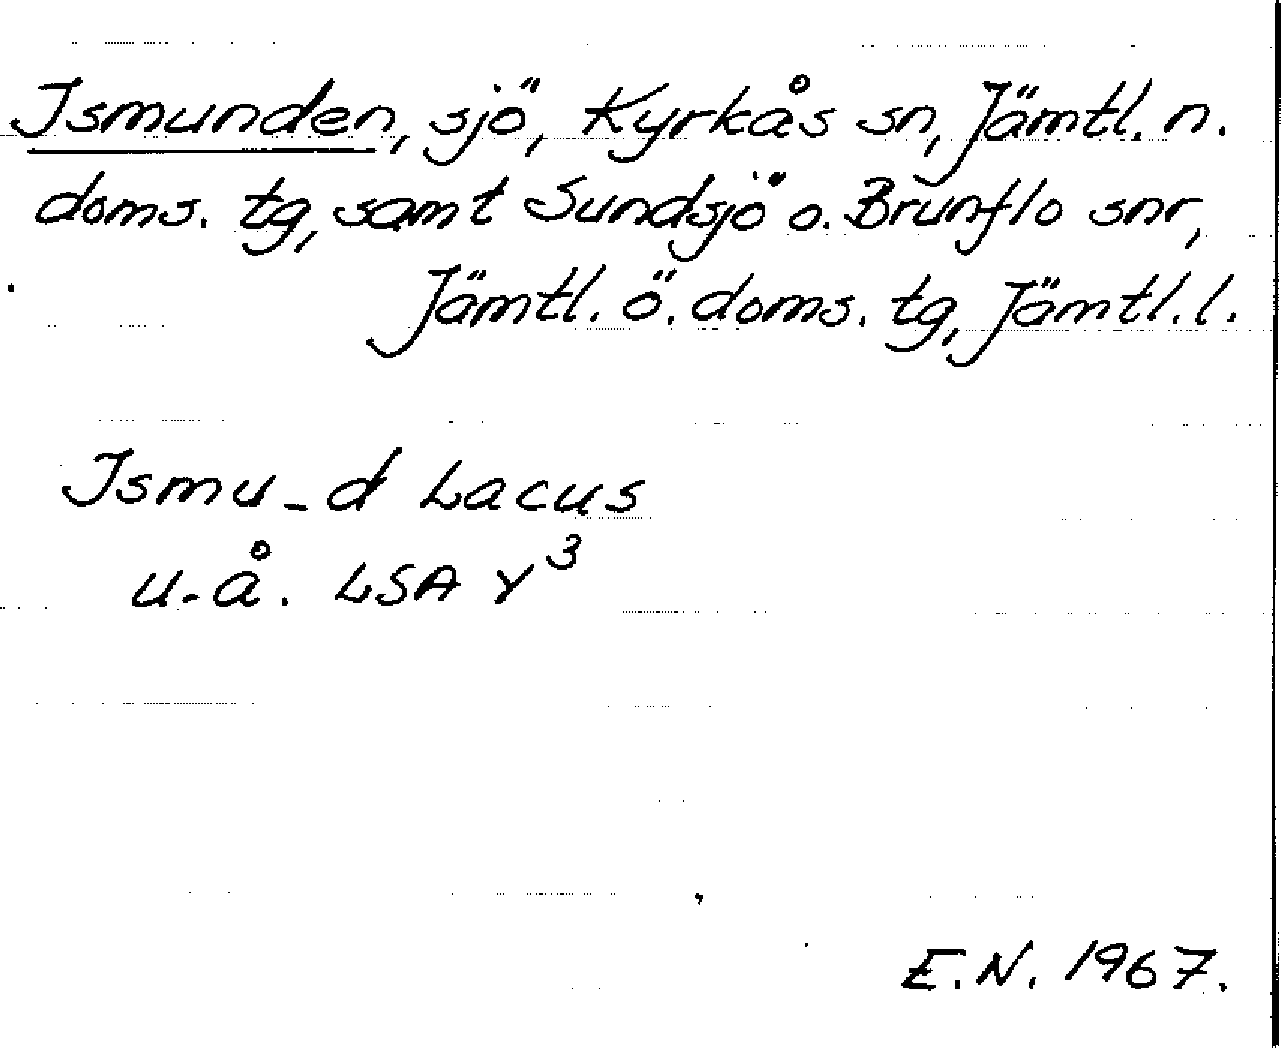 Ismunden, sjö, Kyrkås sn, Jämtl. n.
doms. tg, samt Sundsjö o. Brunflo snr,
Jämtl. ö. doms. tg, Jämtl. l.
Ismu-d Lacus
u.å. LSA Y³
E.N. 1967.